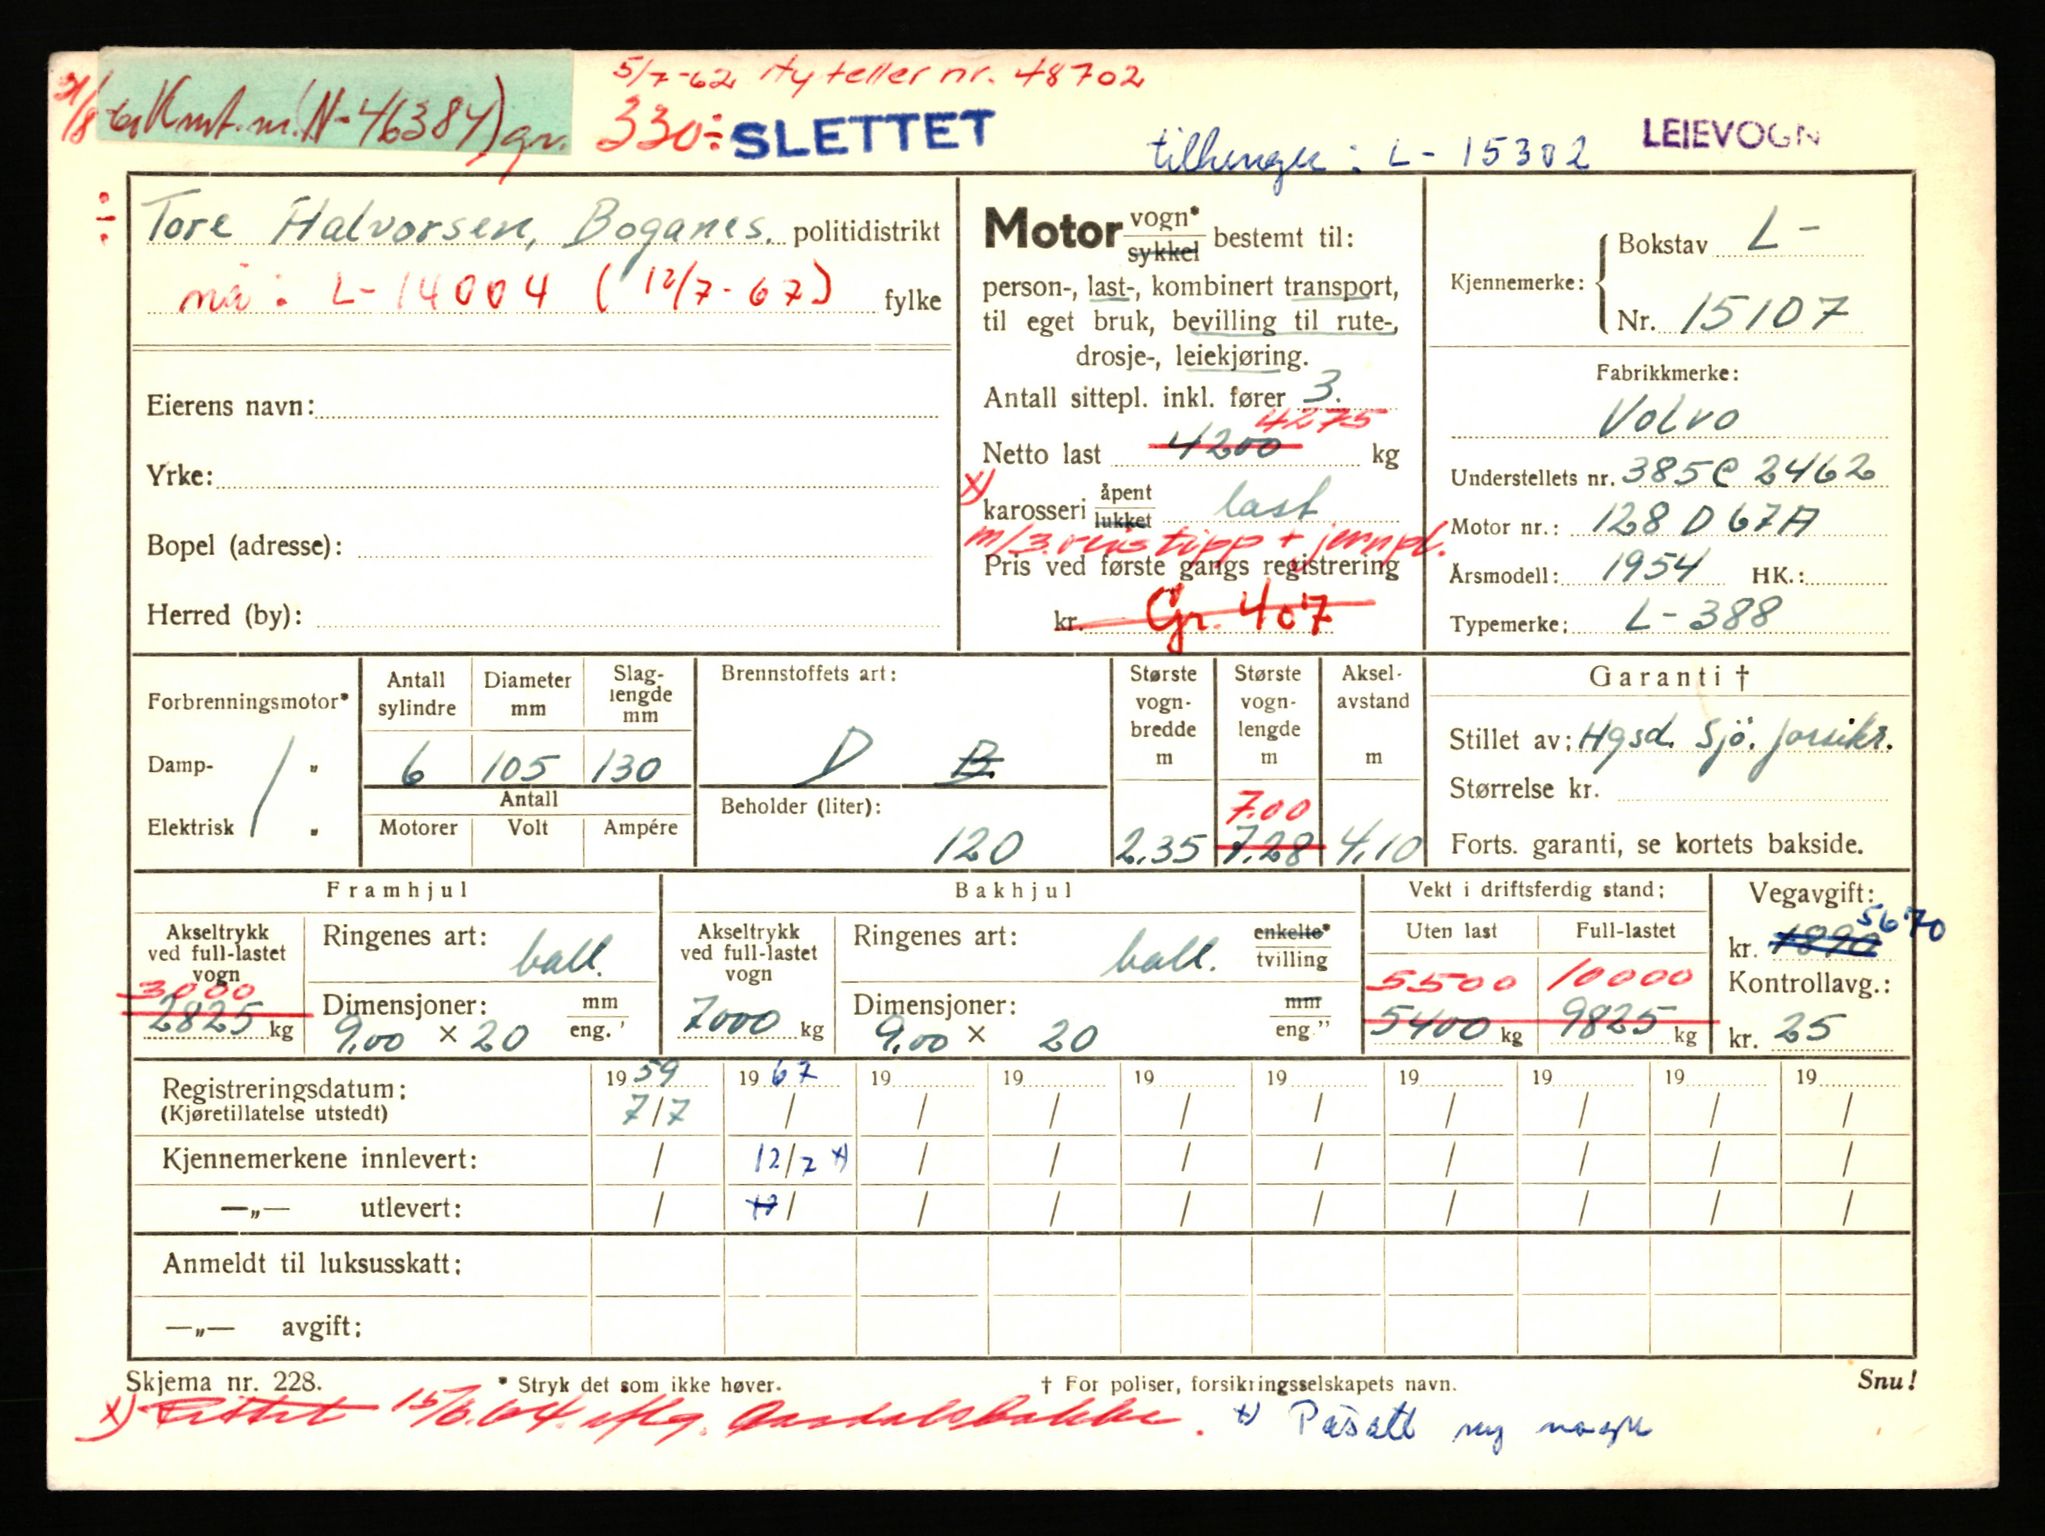 5/7-62 Ny teller nr. 48702
21/8 61 Kmt. nr. (N-46384) gr.
330÷ SLETTET
tilhenger: L-15302
LEIEVOGN
÷ Tore Halvorsen, Boganes. politidistrikt
nå: L-14004 (12/7-67) fylke
Eierens navn:
Yrke:
Bopel (adresse):
Herred (by):
Motor vogn* sykkel bestemt til:
person-, last-, kombinert transport,
til eget bruk, bevilling til rute-,
drosje-, leiekjøring.
Antall sittepl. inkl. fører 3.
4275
Netto last 4200 kg
x) karosseri åpent lukket last
m/3.veis tipp + jernpl.
Pris ved første gangs registrering
kr. Gr. 407
Kjennemerke: Bokstav L-
Nr. 15107
Fabrikkmerke:
Volvo
Understellets nr. 385C 2462
Motor nr.: 128 D 67A
Årsmodell: 1954 HK.:
Typemerke: L-388
Forbrenningsmotor*
Damp- "
Elektrisk "
Antall sylindre
6
Diameter mm
105
Slaglengde mm
130
Antall
Motorer Volt Ampére
Brennstoffets art:
D B.
Beholder (liter):
120
Største vognbredde m
2.35
Største vognlengde m
7.00
7.28
Akselavstand m
4.10
Garanti †
Stillet av: Hgsd. Sjö. forsikr.
Størrelse kr.
Forts. garanti, se kortets bakside.
Framhjul
Akseltrykk ved full-lastet vogn
3000
2825 kg
Ringenes art: ball.
Dimensjoner: mm eng. '
9.00 x 20
Bakhjul
Akseltrykk ved full-lastet vogn
7000 kg
Ringenes art: ball. enkelte* tvilling
Dimensjoner: mm eng. "
9.00 x 20
Vekt i driftsferdig stand:
Uten last Full-lastet
5500 10000
5400 kg 9825 kg
Vegavgift:
5670
kr. 1890
Kontrollavg.:
kr. 25
Registreringsdatum: 1959 1967 19 19 19 19 19 19 19 19
(Kjøretillatelse utstedt) 7/7 / / / / / / / / /
Kjennemerkene innlevert: / 12/7 x) / / / / / / / /
—„— utlevert: / 12/ / / / / / / / /
Anmeldt til luksusskatt:
—„— avgift:
Skjema nr. 228.
* Stryk det som ikke høver.
† For poliser, forsikringsselskapets navn.
Snu!
x) 15/6.64.
x) Påsatt ny vogn